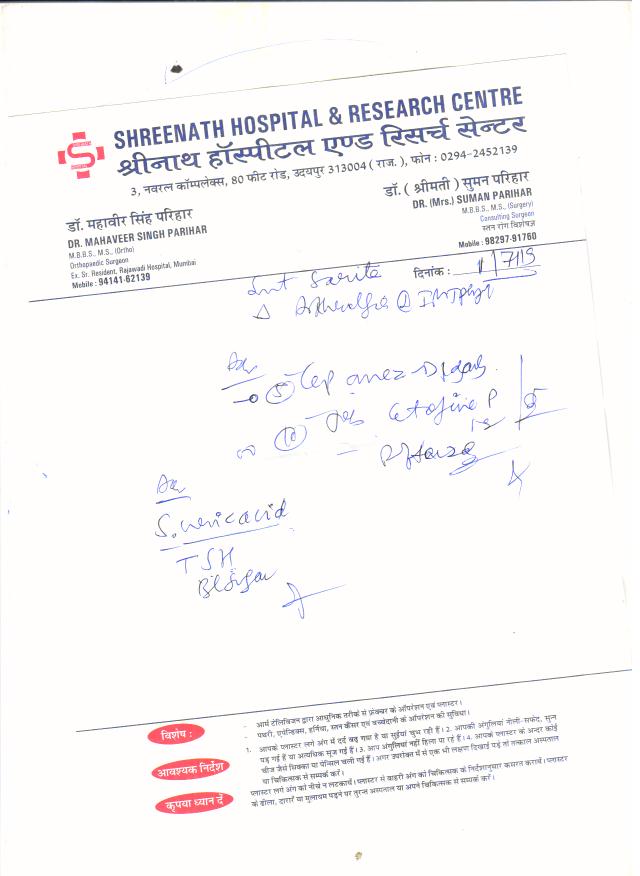 SHREENATH HOSPITAL & RESEARCH CENTRE
श्रीनाथ हॉस्पीटल एण्ड रिसर्च सेन्टर
3, नवरत्न कॉम्पलेक्स, 80 फीट रोड, उदयपुर 313004 ( राज. ), फोन : 0294-2452139
डॉ. महावीर सिंह परिहार
DR. MAHAVEER SINGH PARIHAR
M.B.B.S., M.S., (Ortho)
Orthopaedic Surgeon
Ex. Sr. Resident, Rajawadi Hospital, Mumbai
Mobile : 94141-62139
डॉ. ( श्रीमती ) सुमन परिहार
DR. (Mrs.) SUMAN PARIHAR
M.B.B.S., M.S., (Surgery)
Consulting Surgeon
स्तन रोग विशेषज्ञ
Mobile : 98297-91760
दिनांक :
Adv
Adv
S. uric acid
TSH
Bl Sugar
विशेष :
- आर्म टेलिविजन द्वारा आधुनिक तरीके से फ्रेक्चर के ऑपरेशन एवं प्लास्टर।
- पथरी, एपेन्डिक्स, हर्निया, स्तन कैंसर एवं बच्चेदानी के ऑपरेशन की सुविधा।
आवश्यक निर्देश
1. आपके प्लास्टर लगे अंग में दर्द बढ़ गया है या सुईयां चुभ रही हैं। 2. आपकी अंगुलियां नीली-सफेद, सुन्न
पड़ गई हैं या अत्यधिक सूज गई हैं। 3. आप अंगुलियां नहीं हिला पा रहे हैं। 4. आपके प्लास्टर के अन्दर कोई
चीज जैसे सिक्का या पेन्सिल चली गई हैं। अगर उपरोक्त में से एक भी लक्षण दिखाई पड़े तो तत्काल अस्पताल
या चिकित्सक से सम्पर्क करें।
कृपया ध्यान दें
प्लास्टर लगे अंग को नीचे न लटकायें। प्लास्टर से बाहरी अंग की चिकित्सक के निर्देशानुसार कसरत करावें। प्लास्टर
के ढीला, दरारों या मुलायम पड़ने पर तुरन्त अस्पताल या अपने चिकित्सक से सम्पर्क करें।